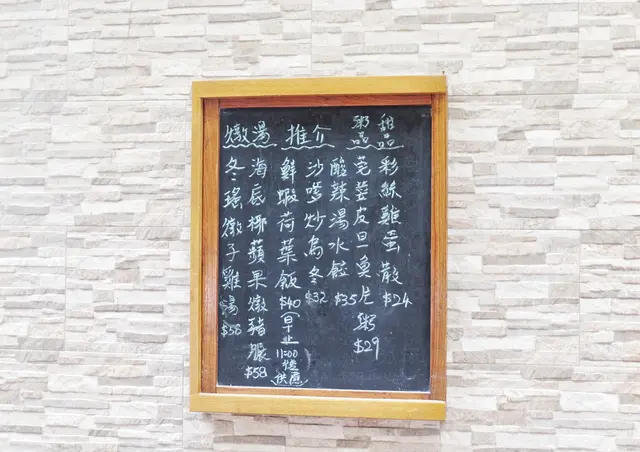 甜品
粥品
推介
燉湯
彩絲雞蛋散 $24
芫荽皮旦魚片粥 $29
酸辣湯水餃 $35
沙嗲炒烏冬 $32
鮮蝦荷葉飯 $40
(早上11:00後供應)
海底椰蘋果燉豬𦟌 $58
冬瑤燉子雞湯 $58